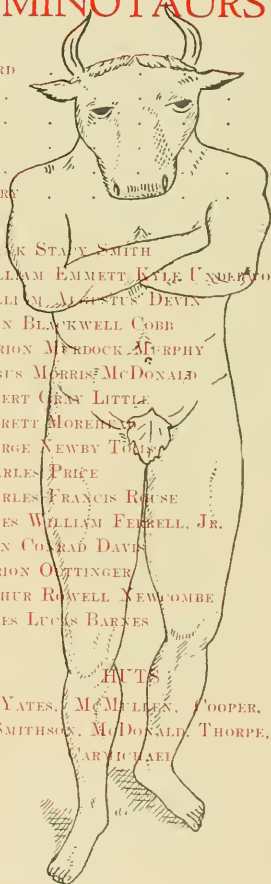 MINOTAURS
RD
RY
K STACY SMITH
LLIAM EMMETT KYLE UNDERWO
LLIAM AUGUSTUS DEVIN
N BLACKWELL COBB
RION MURDOCK MURPHY
US MORRIS MCDONALD
ERT GRAY LITTLE
RETT MOREHEAD
RGE NEWBY TOMS
ARLES PRICE
ARLES FRANCIS ROUSE
ES WILLIAM FERRELL, JR.
N CONRAD DAVIS
RION OETTINGER
HUR ROWELL NEWCOMBE
ES LUCAS BARNES
HUTS
YATES, MCMULLEN, COOPER,
SMITHSON, MCDONALD, THORPE,
CARMICHAEL